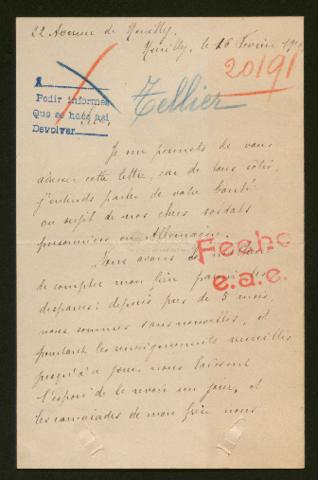 22 Avenue de Neuilly.
Neuilly, le 16 Février 19
20191
A
Pedir informes
Que se hace aqui
Devolver
Tellier
Je me permets de vous
adresser cette lettre, car de tous côtés
j'entends parler de votre bonté
au sujet de nos chers soldats
prisonniers en Allemagne.
Fecho
e.a.e.
Nous avons
de compter mon frère parmi les
disparus: depuis près de 5 mois
nous sommes sans nouvelles, et
pourtant les renseignements recueillis
jusqu'à ce jour nous laissent
l'espoir de le revoir un jour, et
les camarades de mon frère nous